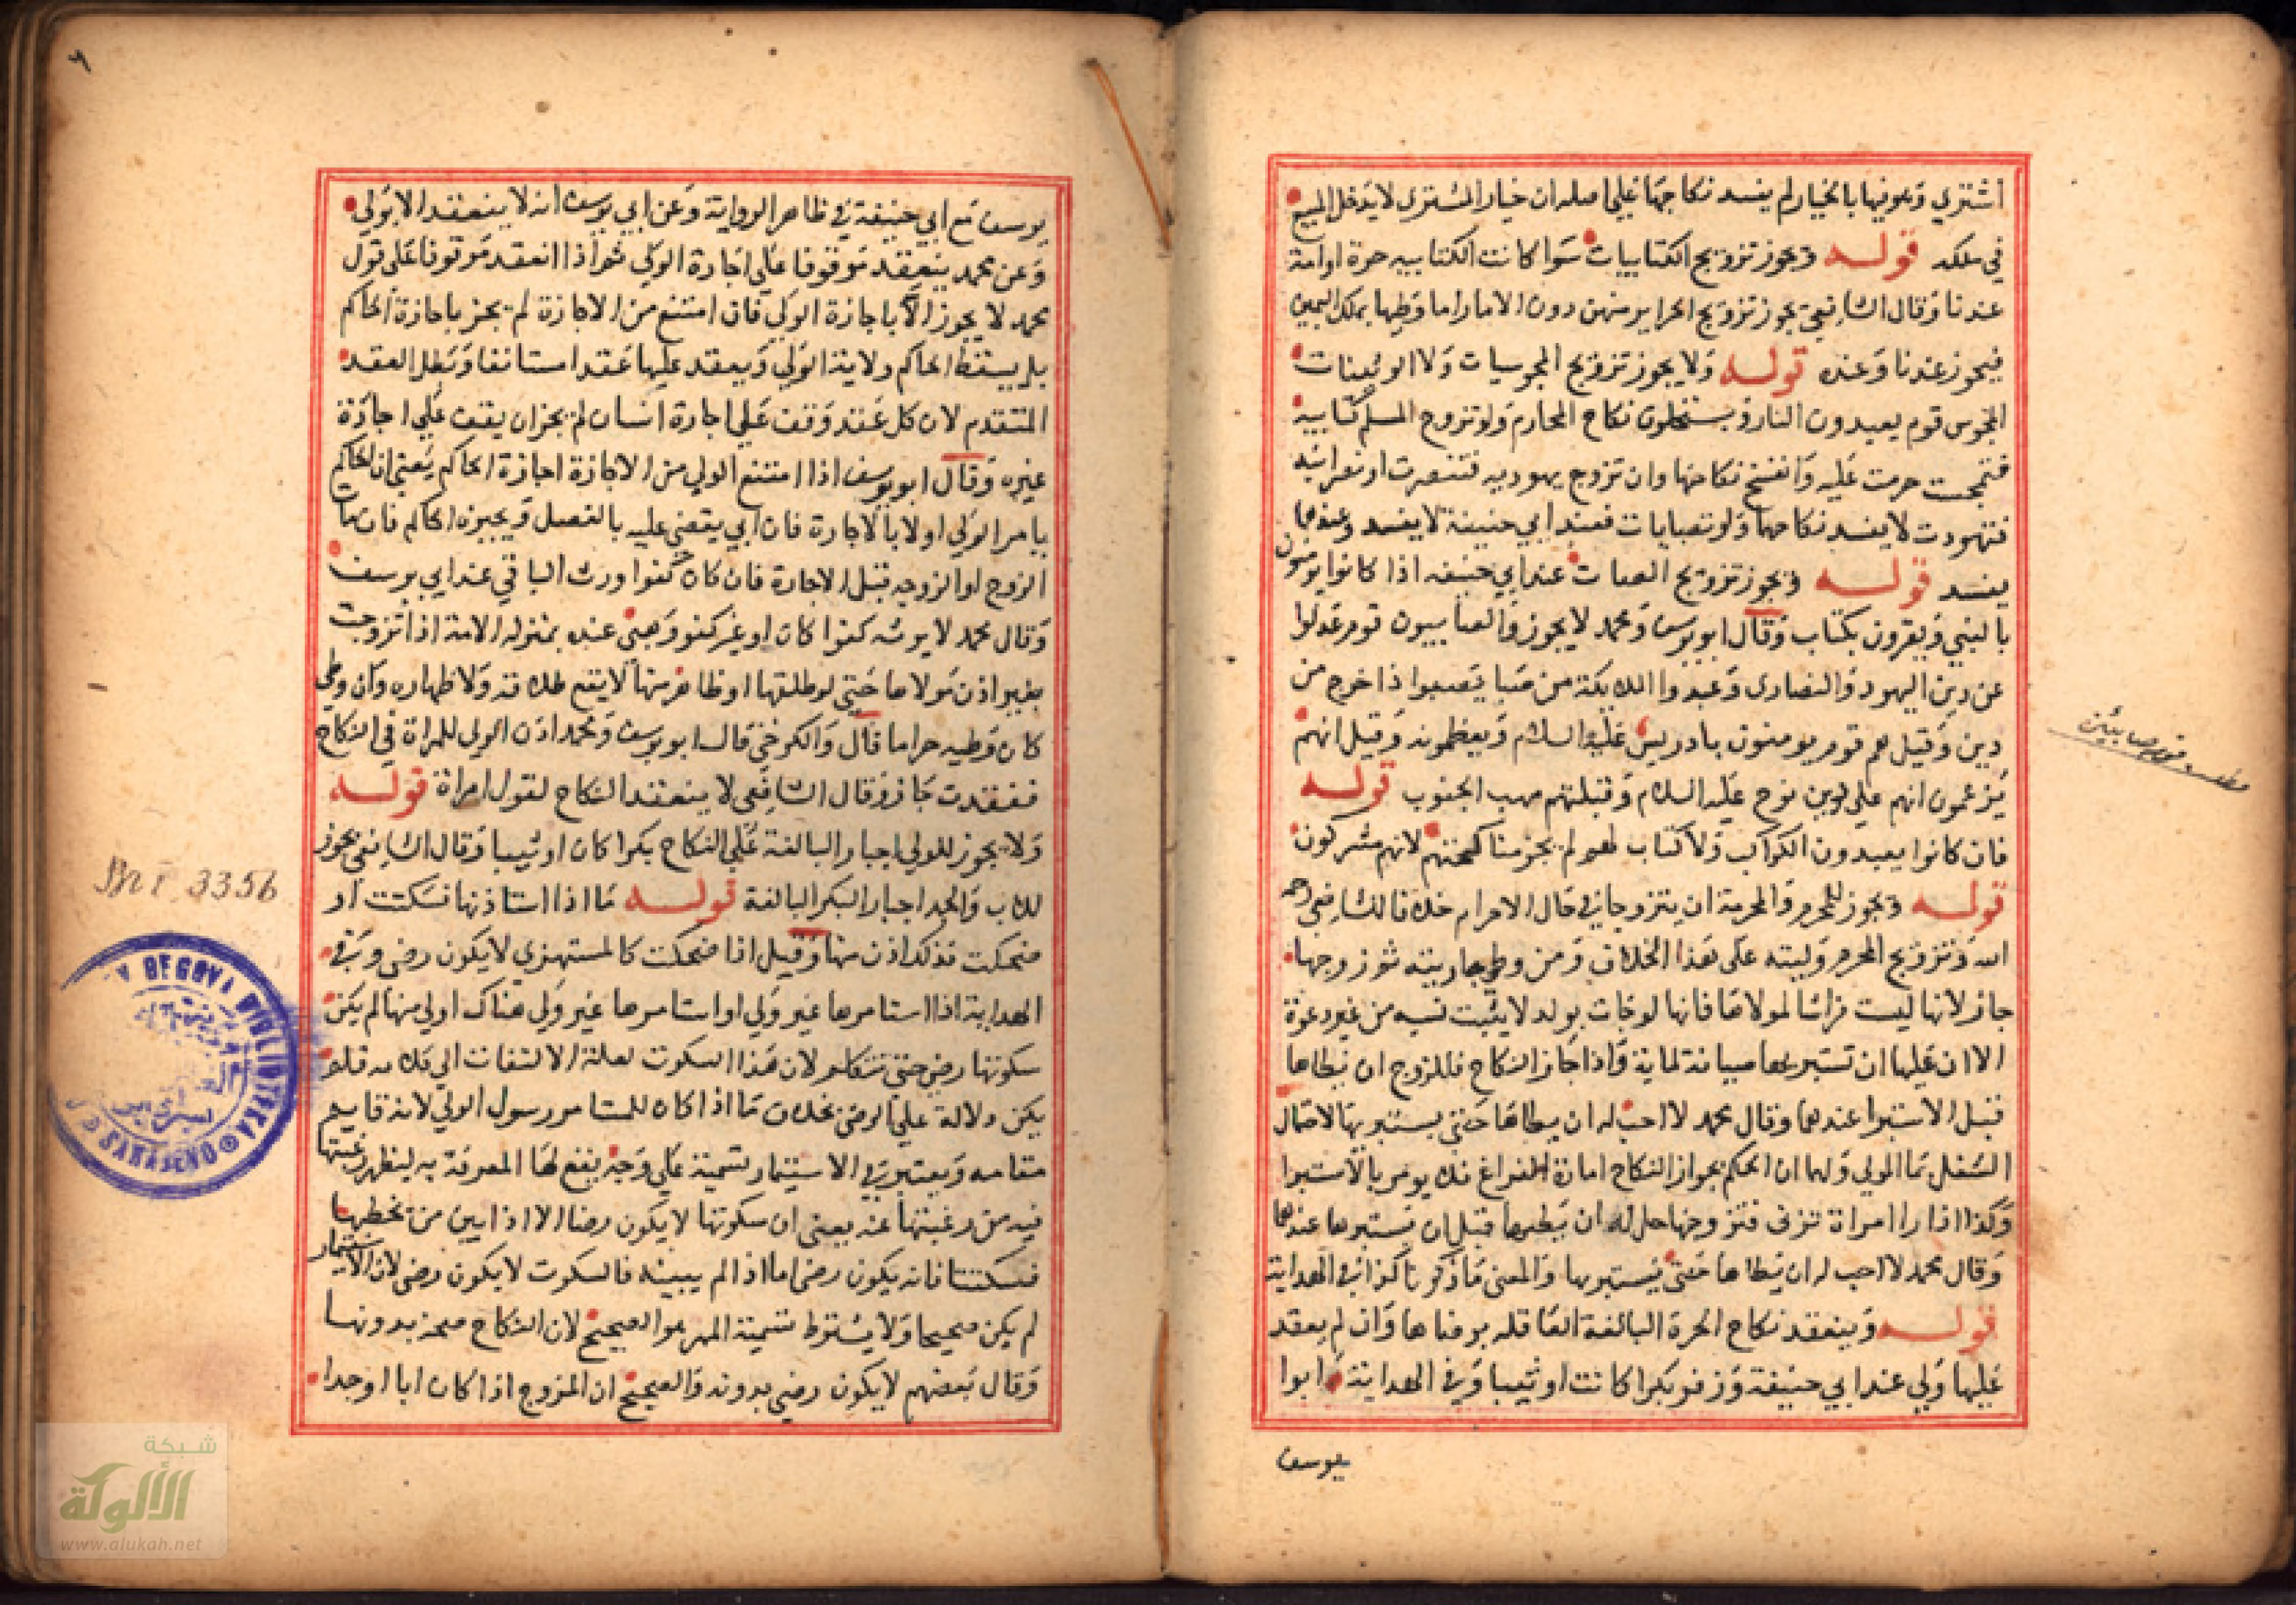 اشتري وهو فيها بالخيار لم يفسد نكاحها علي اصله ان خيار المشتري لا يدخل المبيع
في ملكه قوله ويجوز تزويج الكتابيات سوا كانت الكتابيه حرة او امة
عندنا وقال الشافعي يجوز تزويج الحراير منهن دون الاما واما وطيها بملك اليمين
فيجوز عندنا وعنده قوله ولا يجوز تزويج المجوسيات ولا الوثنيات
المجوس قوم يعبدون النار ويستحلون نكاح المحارم ولو تزوج المسلم كتابية
فتمجست حرمت عليه وانفسخ نكاحها وان تزوج يهوديه فتنصرت او نصرانيه
فتهودت لا يفسد نكاحها ولو تصبايات فعند ابي حنيفة لا يفسد وعندهما
يفسد قوله ويجوز تزويج الصبيات عند ابي حنيفه اذا كانوا يومنون
بالنبي ويقرون بكتاب وقال ابو يوسف ومحمد لا يجوز والصابيون قوم عدلوا
عن دين اليهود والنصارى وعبدوا الملايكة من صبا يصبوا اذا خرج من
دين وقيل هم قوم يومنون بادريس عليه السلام ويعظمونه وقيل انهم
يزعمون انهم علي دين نوح عليه السلام وقبلتهم مهب الجنوب قوله
فان كانوا يعبدون الكواكب ولا كتاب لهم لم يجز مناكحتهم لانهم مشركون
قوله ويجوز للمحرم والمحرمة ان يتزوجا في حال الاحرام خلافا للشافعي رحمه
الله وتزويج المحرم وليته على هذا الخلاف ومن وطي جاريته ثم زوجها
جاز لانها ليست فراشا لمولاها فانها لو جات بولد لا يثبت نسبه من غير دعوة
الا ان عليها ان تستبريها صيانة لمايه واذا جاز النكاح فللزوج ان يطاها
قبل الاستبرا عندهما وقال محمد لا احب له ان يطاها حتى يستبريها لاحتمال
الشغل بما المولي ولهما ان الحكم بجواز النكاح امارة الفراغ فلا يومر بالاستبرا
وكذا اذا را امراة تزني فتزوجها حل له ان يطيها قبل ان يستبريها عندهما
وقال محمد لا احب له ان يطاها حتى يستبريها والمعنى ما ذكرنا كذا في الهداية
قوله وينعقد نكاح الحرة البالغة العاقله برضاها وان لم يعقد
عليها ولي عند ابي حنيفة وزفر بكرا كانت او ثيبا وفي الهداية وابوا
يوسف
مطلب قوم صابئين
٦
يوسف مع ابي حنيفة في ظاهر الرواية وعن ابي يوسف انه لا ينعقد الا بولي
وعن محمد ينعقد موقوفا علي اجازة الولي ثم اذا انعقد موقوفا على قول
محمد لا يجوز الا باجازة الولي فان امتنع من الاجازة لم يجز باجازة الحاكم
بل يسقط الحاكم ولاية الولي ويعقد عليها عقدا مستانفا وبطل العقد
المتقدم لان كل عقد وقف علي اجازة انسان لم يجز ان يقف علي اجازة
غيره وقال ابو يوسف اذا امتنع الولي من الاجازة اجازة الحاكم يعني ان الحاكم
يامر الولي اولا بالاجازة فان ابي يقضي عليه بالفصل ويجيزه الحاكم فان مات
الزوج او الزوجه قبل الاجازة فان كان كفوا ورث الباقي عند ابي يوسف
وقال محمد لا يورثه كفوا كان او غير كفو وهي عنده بمنزله الامة اذا تزوجت
بغير اذن مولاها حتي لو طلقها او ظاهر منها لا يقع طلاقه ولا ظهاره وان وطي
كان وطيه حراما قال والكرخي قال ابو يوسف ومحمد اذن الولي للمراة في النكاح
فعقدت جاز وقال الشافعي لا ينعقد النكاح لقول امراة قوله
ولا يجوز للولي اجبار البالغة علي النكاح بكرا كان او ثيبا وقال الشافعي يجوز
للاب والجد اجبار البكر البالغة قوله ما اذا استاذنها فسكتت او
ضحكت فذلك اذن منها وقيل اذا ضحكت كالمستهزي لا يكون رضى وفي
الهداية اذا استامرها غير ولي او استامرها غير ولي هناك اولي منه لم يكن
سكوتها رضي حتي تتكلم لان هذا السكوت لعلة الالتفات الي كلامه فلم
يكن دلالة علي الرضي بخلاف ما اذا كان للمستامر رسول الولي لانه قايم
مقامه ويعتبر في الاستيمار تسمية علي وجه يقع لها المعرفة به ليظهر رغبتها
فيه من رغبتها عنه يعني ان سكوتها لا يكون رضا الا اذا بين من يخطبها
فسكتت فانه يكون رضى اما اذا لم يبينه فالسكوت لا يكون رضى لان الاستيمار
لم يكن صحيحا ولا يشترط تسمية المهر هو الصحيح لان النكاح صحة بدونها
وقال بعضهم لا يكون رضي بدونه والصحيح ان المزوج اذا كان ابا او جدا
3356
BEGOVA BIBLIOTEKA
SARAJEVO
شبكة
الألوكة
www.alukah.net